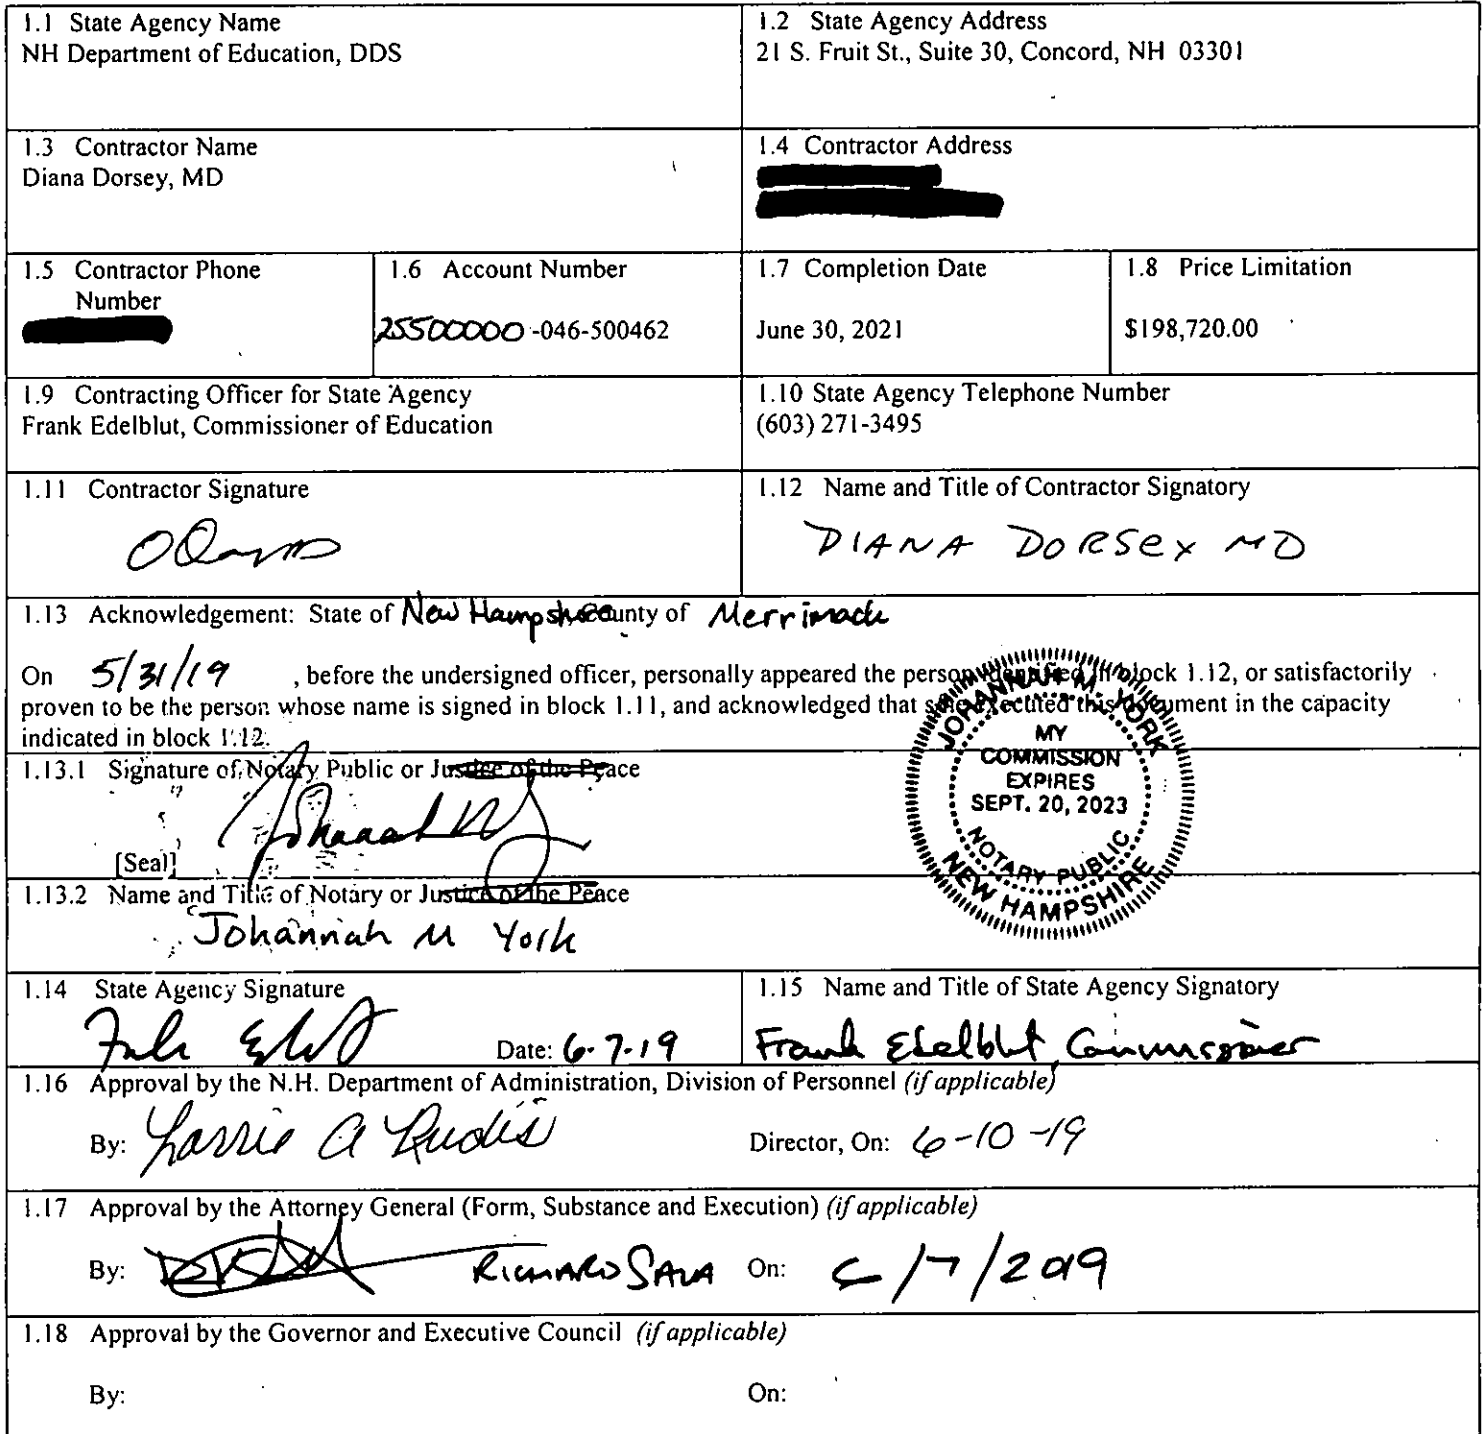 1.1 State Agency Name
NH Department of Education, DDS
1.2 State Agency Address
21 S. Fruit St., Suite 30, Concord, NH 03301
1.3 Contractor Name
Diana Dorsey, MD
1.4 Contractor Address
1.5 Contractor Phone
Number
1.6 Account Number
25500000-046-500462
1.7 Completion Date
June 30, 2021
1.8 Price Limitation
$198,720.00
1.9 Contracting Officer for State Agency
Frank Edelblut, Commissioner of Education
1.10 State Agency Telephone Number
(603) 271-3495
1.11 Contractor Signature
1.12 Name and Title of Contractor Signatory
DIANA DORSEY MD
1.13 Acknowledgement: State of New Hampshire County of Merrimack
On 5/31/19 , before the undersigned officer, personally appeared the person identified in block 1.12, or satisfactorily
proven to be the person whose name is signed in block 1.11, and acknowledged that s/he executed this document in the capacity
indicated in block 1.12.
JOHANNAH M. YORK
MY
COMMISSION
EXPIRES
SEPT. 20, 2023
NOTARY PUBLIC
NEW HAMPSHIRE
1.13.1 Signature of Notary Public or Justice of the Peace
[Seal]
1.13.2 Name and Title of Notary or Justice of the Peace
Johannah M York
1.14 State Agency Signature
Date: 6-7-19
1.15 Name and Title of State Agency Signatory
Frank Edelblut, Commissioner
1.16 Approval by the N.H. Department of Administration, Division of Personnel (if applicable)
By: Director, On: 6-10-19
1.17 Approval by the Attorney General (Form, Substance and Execution) (if applicable)
By: RICHARD SALA On: 6/7/2019
1.18 Approval by the Governor and Executive Council (if applicable)
By: On: